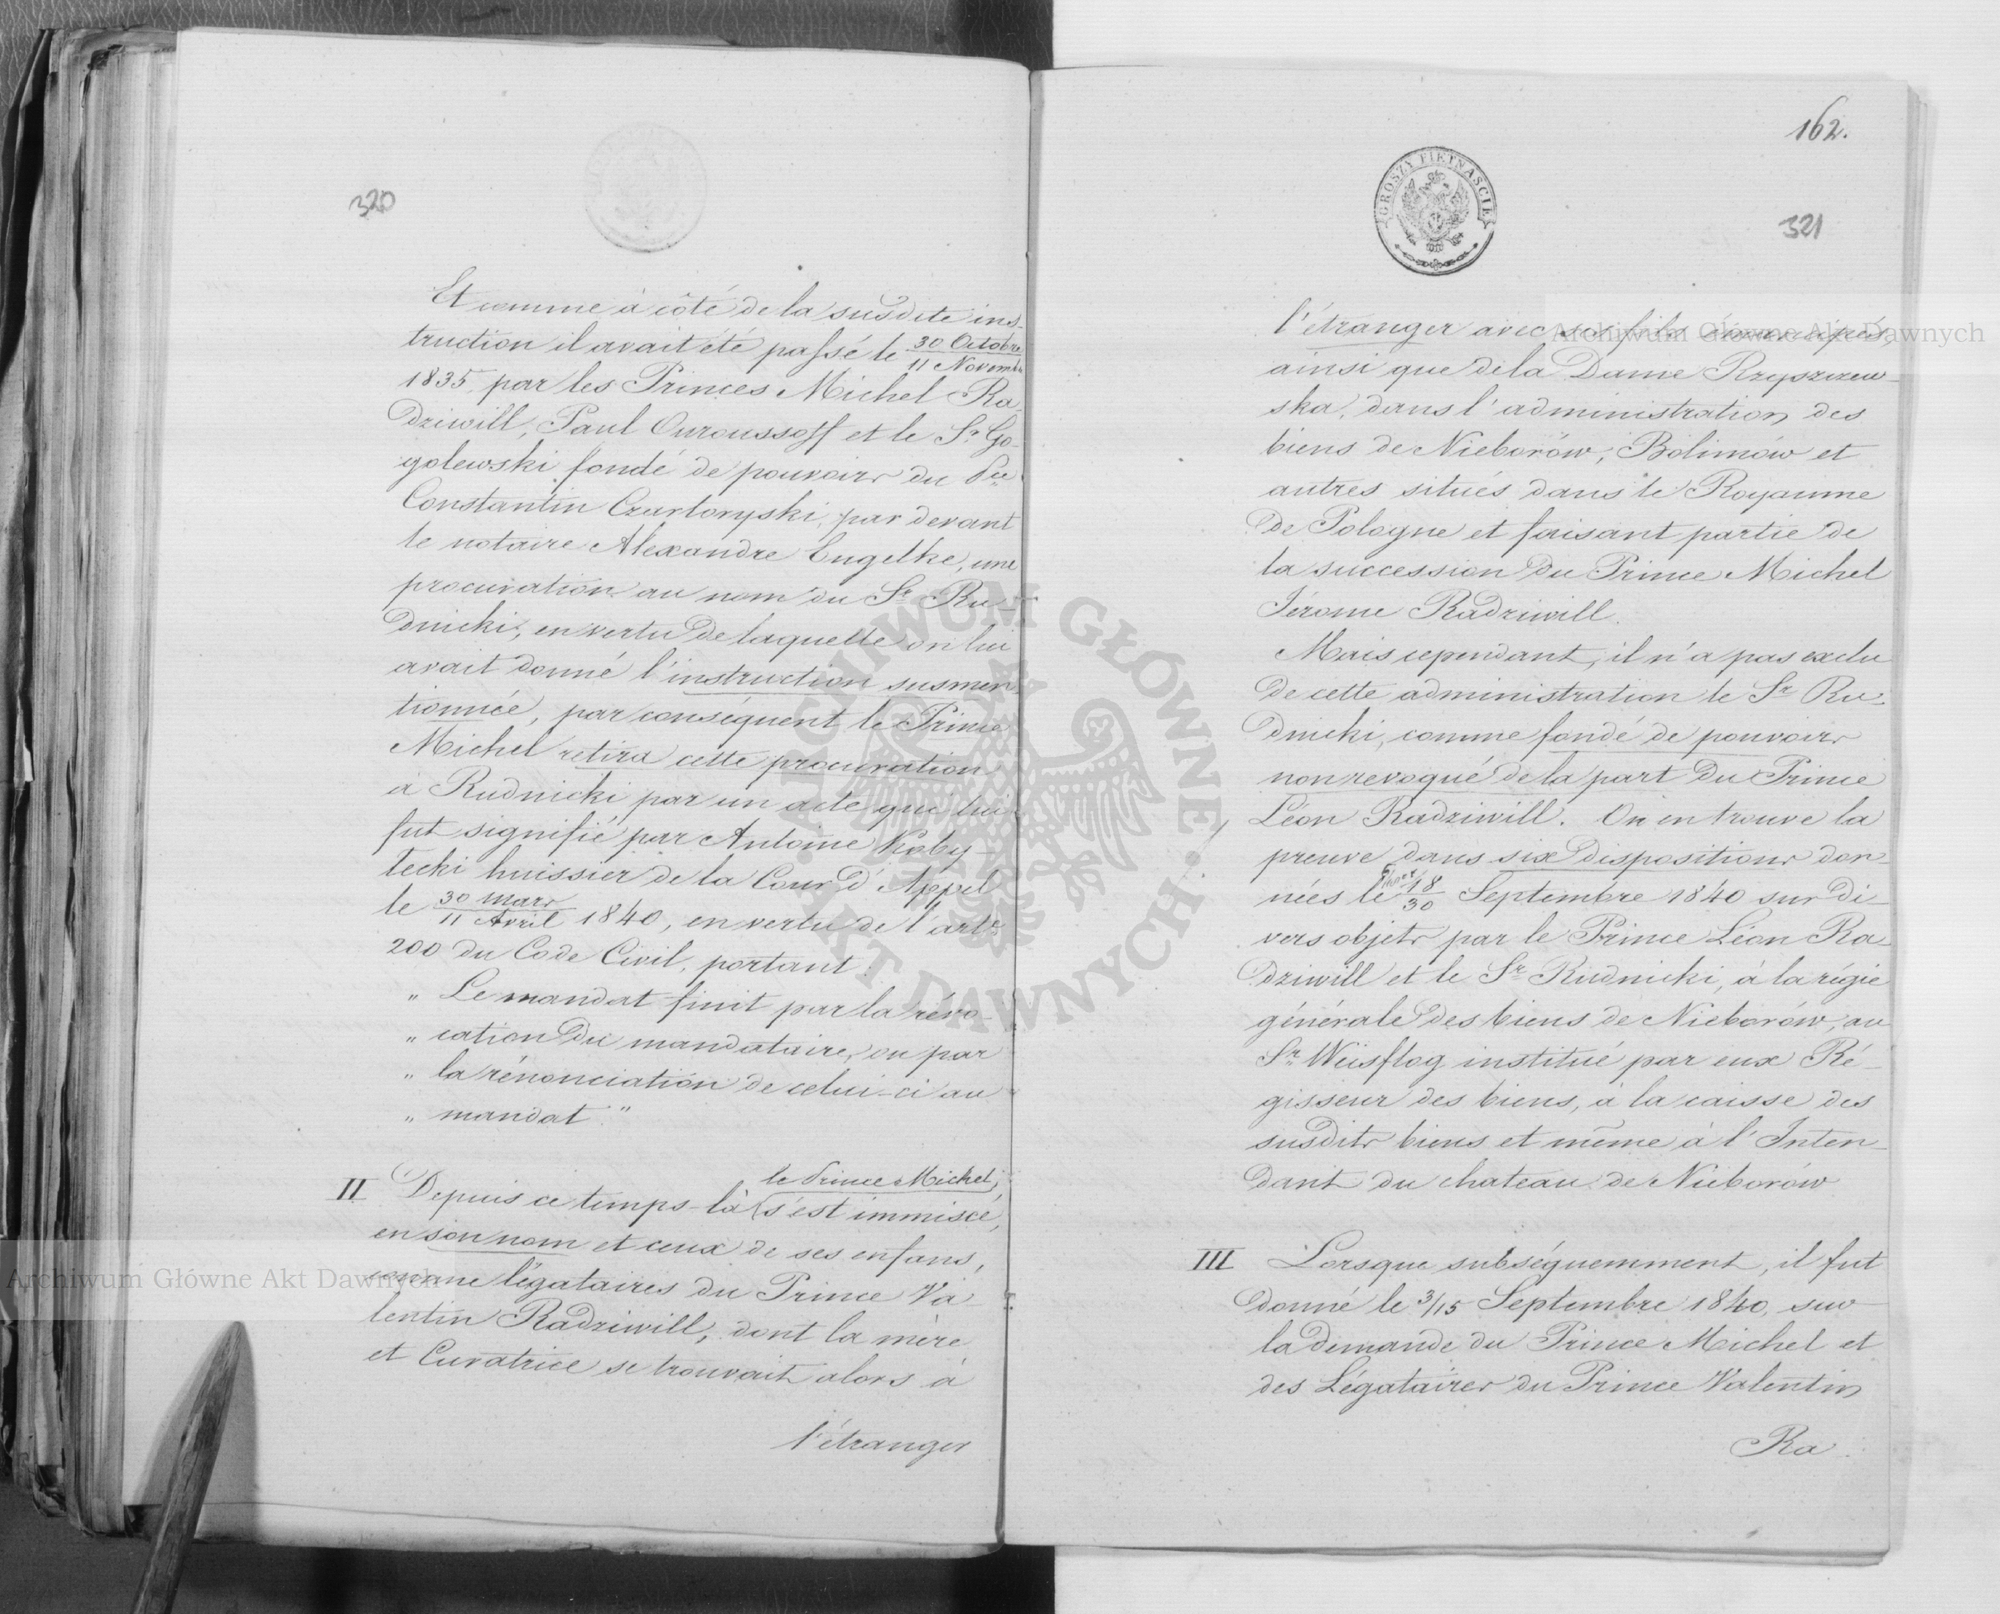 320
Et comme à côté de la susdite ins-
truction il avait été passé le 30 Octobre
11 Novembre
1835 par les Princes Michel Ra-
dziwill, Paul Ouroussoff et le Sr Go-
golewski fondé de pouvoirs du Pce
Constantin Czartoryski, par devant
le notaire Alexandre Engelke, une
procuration au nom du Sr Ru-
dnicki, en vertu de laquelle on lui
avait donné l'instruction susmen-
tionnée, par conséquent le Prince
Michel retira cette procuration
à Rudnicki par un acte qui lui
fut signifié par Antoine Koby-
tecki huissier de la Cour d'Appel
le 30 Mars
11 Avril 1840, en vertu de l'artle
200 du Code Civil, portant:
„ Le mandat finit par la révo-
„ cation du mandataire, ou par
„ la rénonciation de celui-ci au
„ mandat."
le Prince Michel,
II Depuis ce temps-là s'est immiscé,
en son nom et ceux de ses enfans,
comme légataires du Prince Va-
lentin Radziwill, dont la mère
et Curatrice se trouvait alors à
l'étranger
162.
GROSZY PIĘTNAŚCIE
321
l'étranger avec ses fils émancipés,
ainsi que de la Dame Rzyszczew-
ska, dans l'administration des
biens de Nieborów, Bolimów et
autres situés dans le Royaume
de Pologne et faisant partie de
la succession du Prince Michel
Jérome Radziwill.
Mais cependant, il n'a pas exclu
de cette administration le Sr Ru-
dnicki, comme fondé de pouvoirs
non revoqué de la part du Prince
Léon Radziwill. On en trouve la
preuve dans six dispositions don-
nées le 18
30 Septembre 1840 sur di-
vers objets par le Prince Léon Ra-
dziwill et le Sr Rudnicki, à la régie
générale des biens de Nieborów, au
Sr Weisflog institué par eux Ré-
gisseur des biens, à la caisse des
susdits biens et même à l'Inten-
dant du chateau de Nieborów
III Lorsque subséquemment, il fut
donné le 3/15 Septembre 1840, sur
la demande du Prince Michel et
des Légataires du Prince Valentin
Ra
Archiwum Główne Akt Dawnych
Archiwum Główne Akt Dawnych
ARCHIWUM GŁÓWNE AKT DAWNYCH